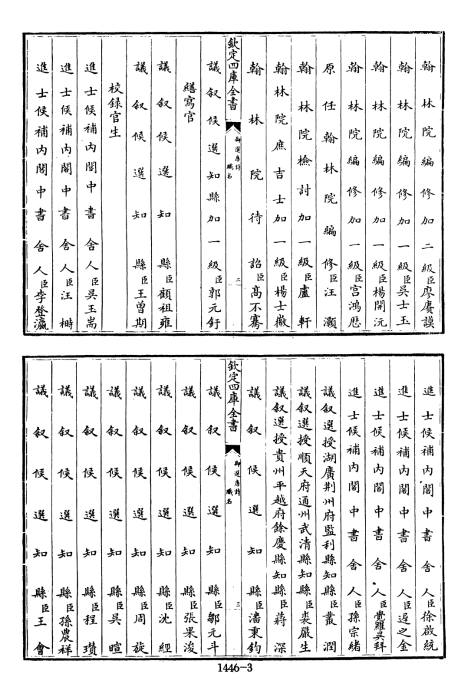 翰林院編修加二級臣廖賡謨
翰林院編修加一級臣吳士玉
翰林院編修加一級臣楊開沅
翰林院編修加一級臣宮鴻歷
原任翰林院編修臣汪灝
翰林院檢討加一級臣盧軒
翰林院庶吉士加一級臣楊士徽
翰林院待詔臣高不騫
欽定四庫全書
御選唐詩
職名
二
議敘候選知縣加一級臣郭元釪
繕寫官
議敘候選知縣臣顧祖雍
議敘候選知縣臣王曾期
校錄官生
進士候補內閣中書舍人臣吳玉嵩
進士候補內閣中書舍人臣汪
進士候補內閣中書舍人臣李登瀛
進士候補內閣中書舍人臣徐啟統
進士候補內閣中書舍人臣之金
進士候補內閣中書舍人臣覺羅吳拜
進士候補內閣中書舍人臣孫宗緒
議敘選授湖廣荆州府監利縣知縣臣叢潤
議敘選授順天府通州武清縣知縣臣裘嚴生
議敘選授貴州平越府餘慶縣知縣臣蔣深
議敘候選知縣臣潘秉鈞
欽定四庫全書
御選唐詩
職名
三
議敘候選知縣臣鄒元斗
議敘候選知縣臣張果浚
議敘候選知縣臣沈經
議敘候選知縣臣周旋
議敘候選知縣臣吳暄
議敘候選知縣臣程瓚
議敘候選知縣臣孫農祥
議敘候選知縣臣王會
1446-3